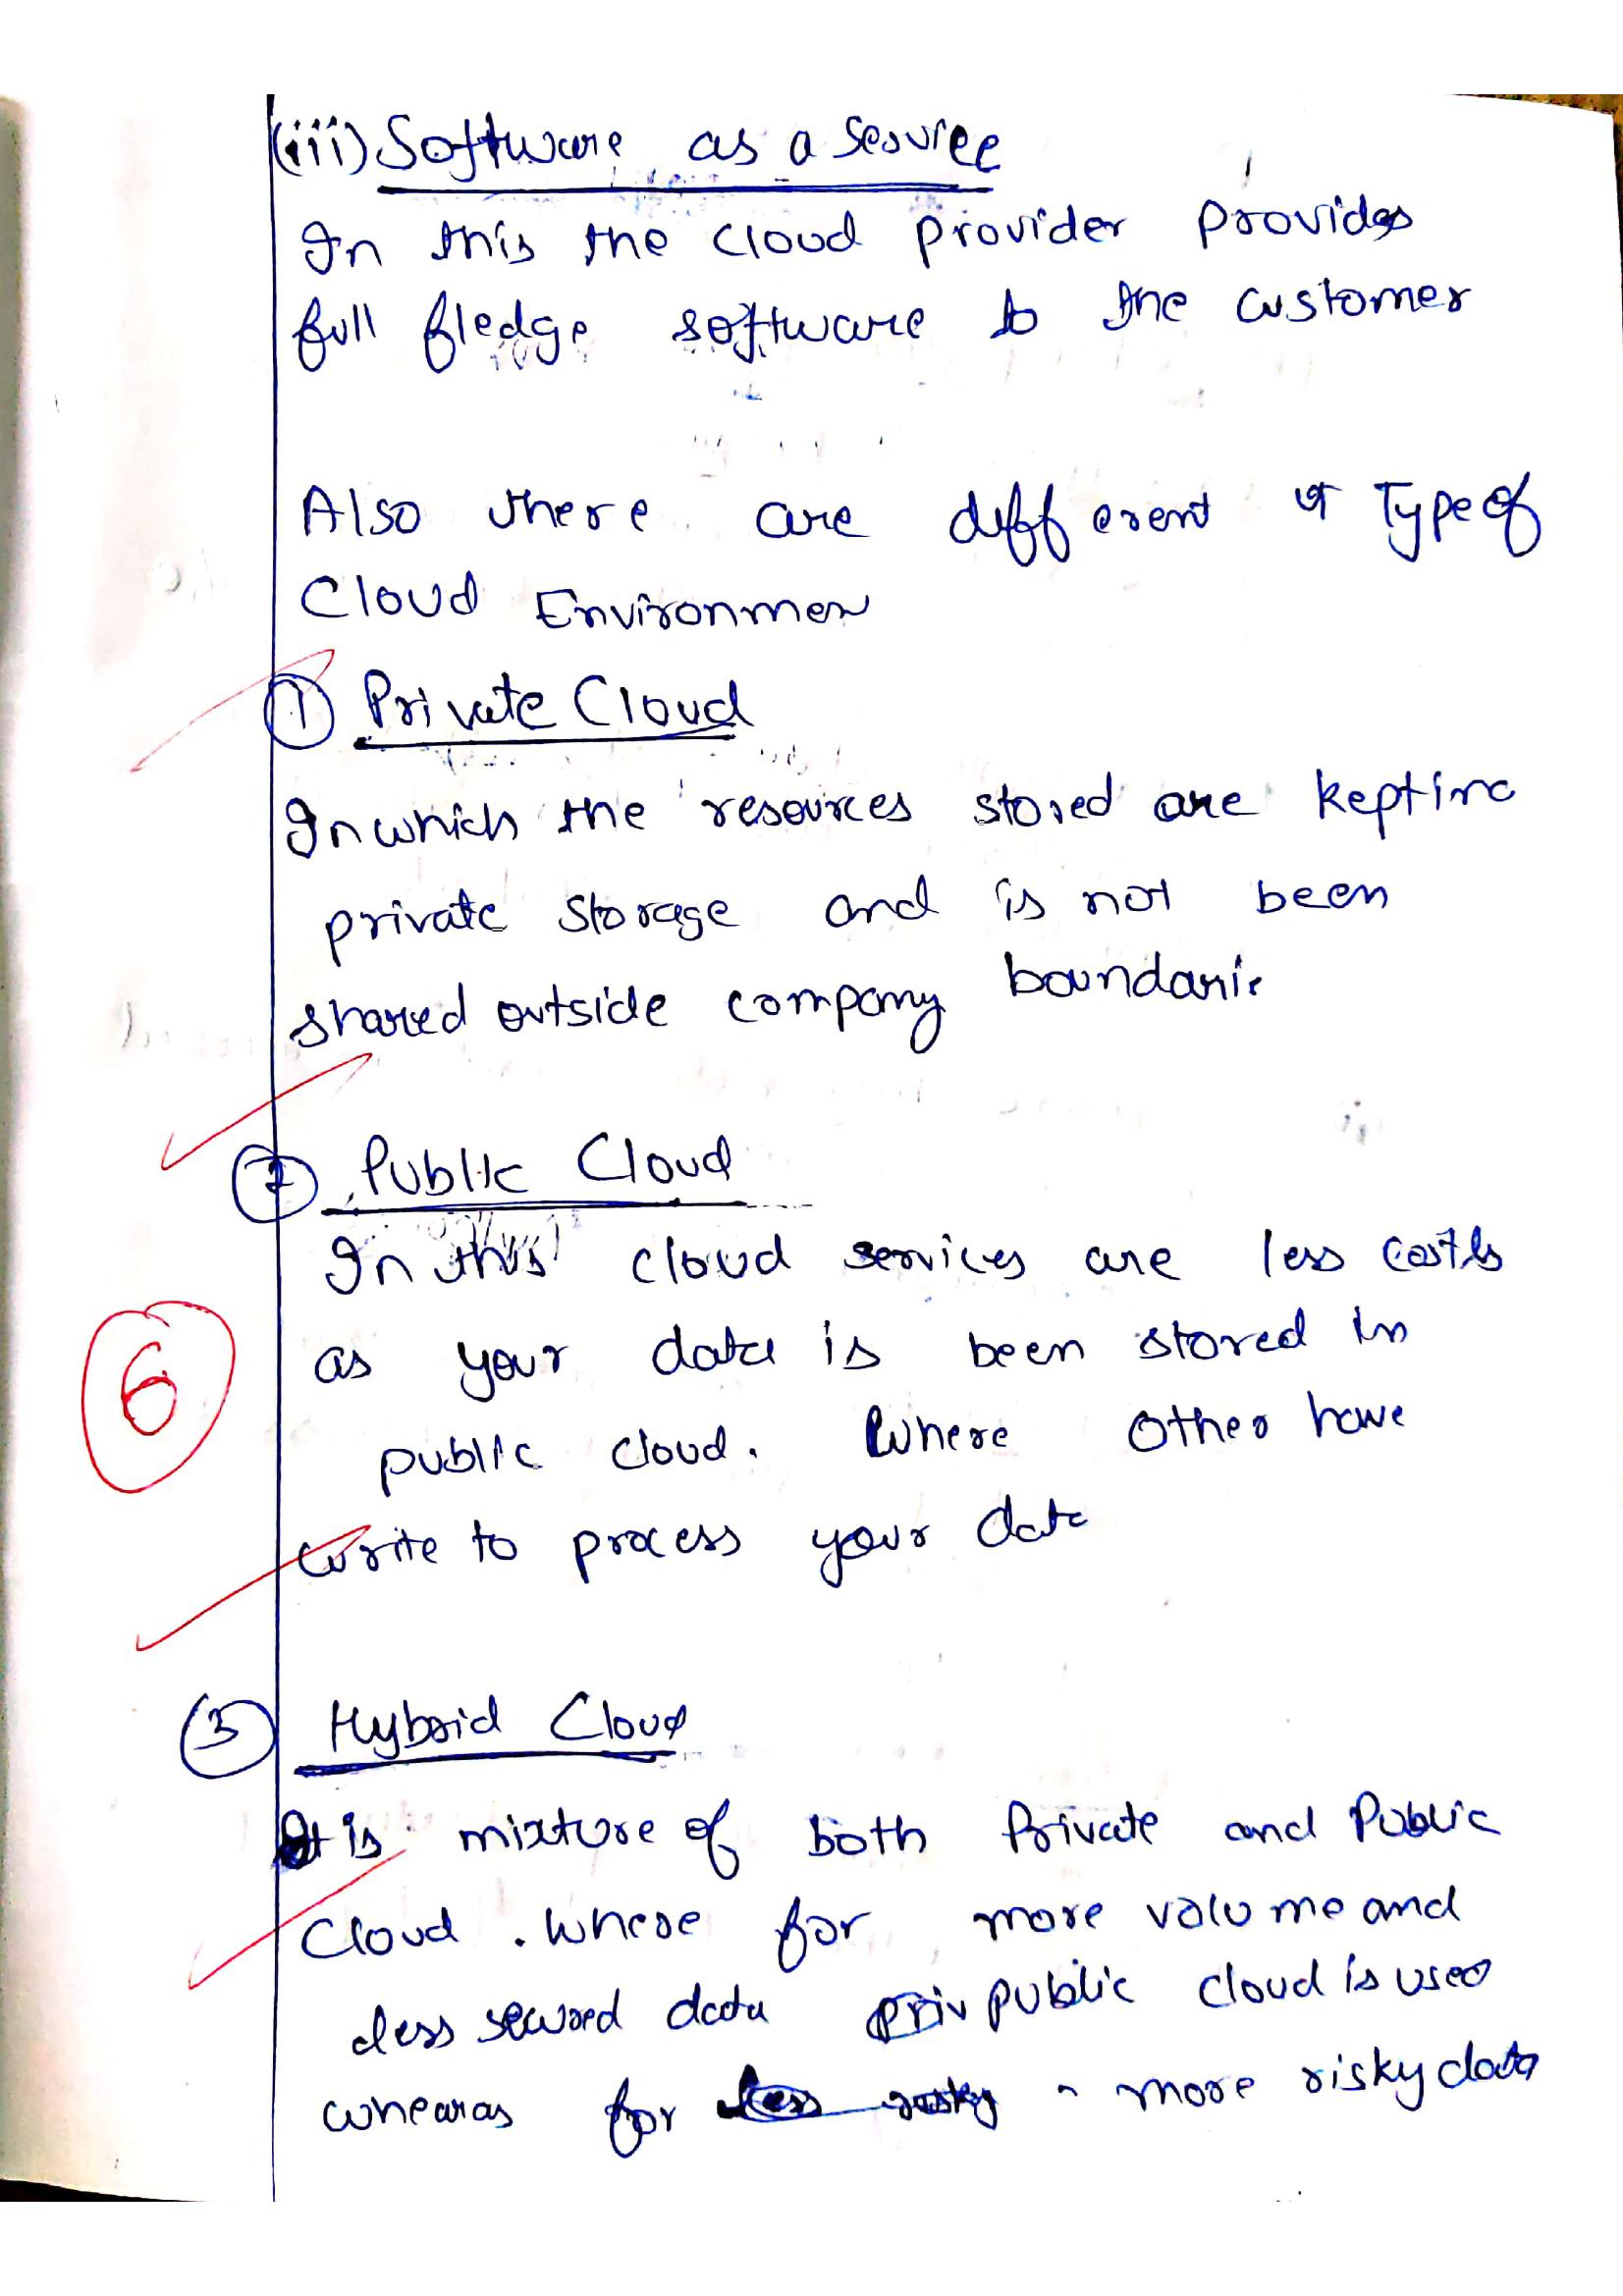 (iii) Software as a service
In this the cloud provider provides
full fledge software to the customer
Also there are different Type of
Cloud Environmen
1 Private Cloud
In which the resources stored are kept in a
private storage and is not been
shared outside company boundarie
2 Public Cloud
In this cloud services are less costly
as your data is been stored in
public cloud. Where other have
6
write to process your data
3 Hybrid Cloud
It is mixture of both Private and Public
Cloud. Where for more volume and
less secured data public cloud is used
whearas for more risky data